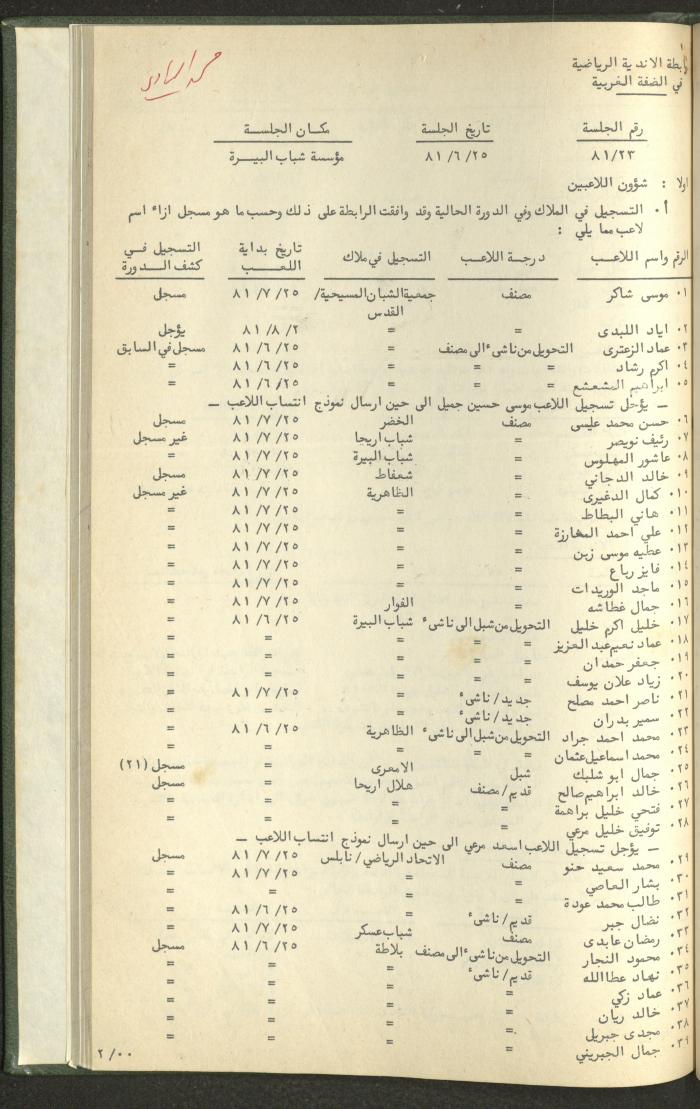 رابطة الاندية الرياضية
في الضفة الغربية
رقم الجلسة تاريخ الجلسة مكان الجلسة
٨١/٢٣ ٨١/٦/٢٥ مؤسسة شباب البيرة
اولا : شؤون اللاعبين
أ٠ التسجيل في الملاك وفي الدورة الحالية وقد وافقت الرابطة على ذلك وحسب ما هو مسجل ازاء اسم
لاعب مما يلي :
الرقم واسم اللاعب درجة اللاعب التسجيل في ملاك تاريخ بداية اللعب التسجيل في كشف الدورة
٠١ موسى شاكر مصنف جمعية الشبان المسيحية/ القدس ٨١/٧/٢٥ مسجل
٠٢ اياد اللبدى = = ٨١/٨/٢ يؤجل
٠٣ عماد الزعترى التحويل من ناشىء الى مصنف = ٨١/٦/٢٥ مسجل في السابق
٠٤ اكرم رشاد = = = ٨١/٦/٢٥ =
٠٥ ابراهيم المشعشع = = = ٨١/٦/٢٥ =
ـ يؤجل تسجيل اللاعب موسى حسين جميل الى حين ارسال نموذج انتساب اللاعب ـ
٠٦ حسن محمد عيسى مصنف الخضر ٨١/٧/٢٥ مسجل
٠٧ رئيف نويصر = شباب اريحا ٨١/٧/٢٥ غير مسجل
٠٨ عاشور المهلوس = شباب البيرة ٨١/٧/٢٥ =
٠٩ خالد الدجاني = شعفاط ٨١/٧/٢٥ مسجل
٠١٠ كمال الدغيرى = الظاهرية ٨١/٧/٢٥ غير مسجل
٠١١ هاني البطاط = = ٨١/٧/٢٥ =
٠١٢ علي احمد المخارزة = = ٨١/٧/٢٥ =
٠١٣ عطيه موسى زبن = = ٨١/٧/٢٥ =
٠١٤ فايز رباع = = ٨١/٧/٢٥ =
٠١٥ ماجد الوريدات = = ٨١/٧/٢٥ =
٠١٦ جمال غطاشه = الفوار ٨١/٧/٢٥ =
٠١٧ خليل اكرم خليل التحويل من شبل الى ناشىء شباب البيرة ٨١/٦/٢٥ =
٠١٨ عماد نعيم عبد العزيز = = = = =
٠١٩ جعفر حمدان = = = = =
٠٢٠ زياد علان يوسف = = = = =
٠٢١ ناصر احمد مصلح جديد/ناشىء = ٨١/٧/٢٥ =
٠٢٢ سمير بدران جديد/ناشىء = = =
٠٢٣ محمد احمد جراد التحويل من شبل الى ناشىء الظاهرية ٨١/٦/٢٥ =
٠٢٤ محمد اسماعيل عثمان = = = = =
٠٢٥ جمال ابو شلبك شبل الامعرى = مسجل (٢١)
٠٢٦ خالد ابراهيم صالح قديم/مصنف هلال اريحا = مسجل
٠٢٧ فتحي خليل براهمة = = = =
٠٢٨ توفيق خليل مرعي = = = =
ـ يؤجل تسجيل اللاعب اسعد مرعي الى حين ارسال نموذج انتساب اللاعب ـ
٠٢٩ محمد سعيد حنو مصنف الاتحاد الرياضي/نابلس ٨١/٧/٢٥ مسجل
٠٣٠ بشار العاصي = = ٨١/٧/٢٥ =
٠٣١ طالب محمد عودة = = = =
٠٣٢ نضال جبر قديم/ناشىء = ٨١/٦/٢٥ =
٠٣٣ رمضان عابدى مصنف شباب عسكر ٨١/٧/٢٥ =
٠٣٤ محمود النجار التحويل من ناشىء الى مصنف بلاطة ٨١/٦/٢٥ مسجل
٠٣٥ نهاد عطاالله قديم/ناشىء = = =
٠٣٦ عماد زكي = = = =
٠٣٧ خالد ريان = = = =
٠٣٨ مجدى جبريل = = = =
٠٣٩ جمال الجبريني = = = =
٢/٠٠